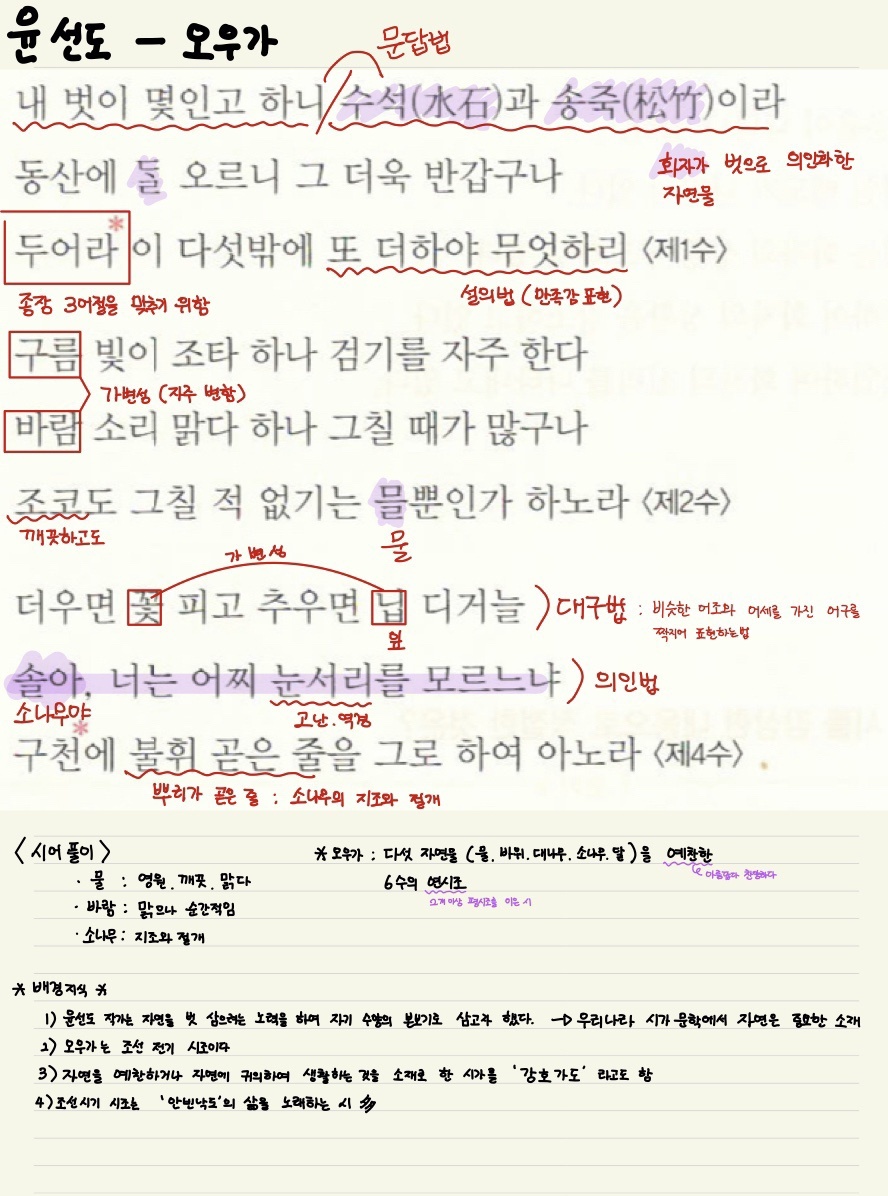 윤선도 - 오우가
문답법
내 벗이 몇인고 하니 수석(水石)과 송죽(松竹)이라
동산에 돌 오르니 그 더욱 반갑구나
화자가 벗으로 의인화한
자연물
두어라 이 다섯밖에 또 더하야 무엇하리 〈제1수〉
종장 3어절을 맞추기 위함
설의법 (만족감 표현)
구름 빛이 조타 하나 검기를 자주 한다
가변성 (자주 변함)
바람 소리 맑다 하나 그칠 때가 많구나
조코도 그칠 적 없기는 믈뿐인가 하노라 〈제2수〉
깨끗하고도
물
가변성
더우면 꽃 피고 추우면 닙 디거늘
잎
대구법 : 비슷한 어조와 어세를 가진 어구를
짝지어 표현하는법
솔아, 너는 어찌 눈서리를 모르느냐
의인법
소나무야
고난.역경
구천에 불휘 곧은 줄을 그로 하여 아노라 〈제4수〉
뿌리가 곧은 줄 : 소나무의 지조와 절개
〈시어풀이〉
· 물 : 영원.깨끗.맑다
· 바람 : 맑으나 순간적임
· 소나무 : 지조와 절개
* 오우가 : 다섯 자연물 (물.바위.대나무.소나무.달)을 예찬한
아름답다 찬양하다
6수의 연시조
2개 이상 평시조를 이은 시
* 배경지식 *
1) 윤선도 작가는 자연을 벗 삼으려는 노력을 하며 자기 수양의 본보기로 삼고자 했다. → 우리나라 시가문학에서 자연은 중요한 소재
2) 오우가는 조선 전기 시조이다
3) 자연을 예찬하거나 자연에 귀의하여 생활하는 것을 소재로 한 시가를 '강호가도' 라고도 함
4) 조선시기 시조는 '안빈낙도'의 삶을 노래하는 시 多